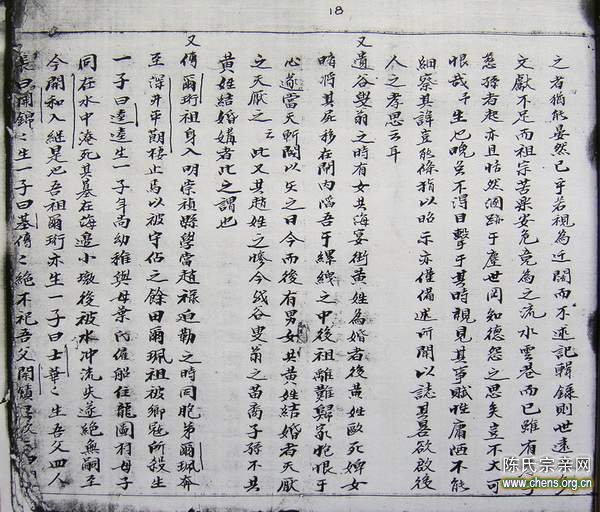 18
之者猶能晏然已乎若視為近閱而不逑記輯錄則世遠人
文獻不足而祖宗苦樂安危竟為之流水雲巷而已雖有孝子
慈孫者起亦且怙然溷跡于塵世罔知德怨之思矣豈不大可
恨哉予生也晚並不得目擊于其時親見其事賦性庸陋不能
細察其諱豈能條指以昭示亦僅備述所聞以誌其畧欲啟後
人之孝思云耳
又遺谷叟翁之時有女與海宴衝黃姓為婚者後黃姓毆死婢女
暗將其屍移在閘內陷吾于縲絏之中後祖離難歸家抱恨于
心遂當天斬閘以矢之曰今而後有男女與黃姓結婚者天厭
之天厭之云此又與趙姓之慘今我谷叟翁之苗裔子孫不與
黃姓結婚媾者此之謂也
又傳爾珩祖身入明崇禎縣學當趙祿迫勒之時同胞弟爾珮奔
至深井平朗棲止焉以被守佔之餘田爾珮祖被鄉寇所殺生
一子曰逵逵生一子年尚幼稚與母葉氏催船往龍圖村母子
同在水中淹死其墓在海邊小墩後被水冲流失遂絕無嗣至
今開和入繼是也吾祖爾珩亦生一子曰士華華生吾父四人
長曰開錦錦生一子曰基傳傳絕不祀吾父開
陈氏宗亲网
www.chens.org.cn